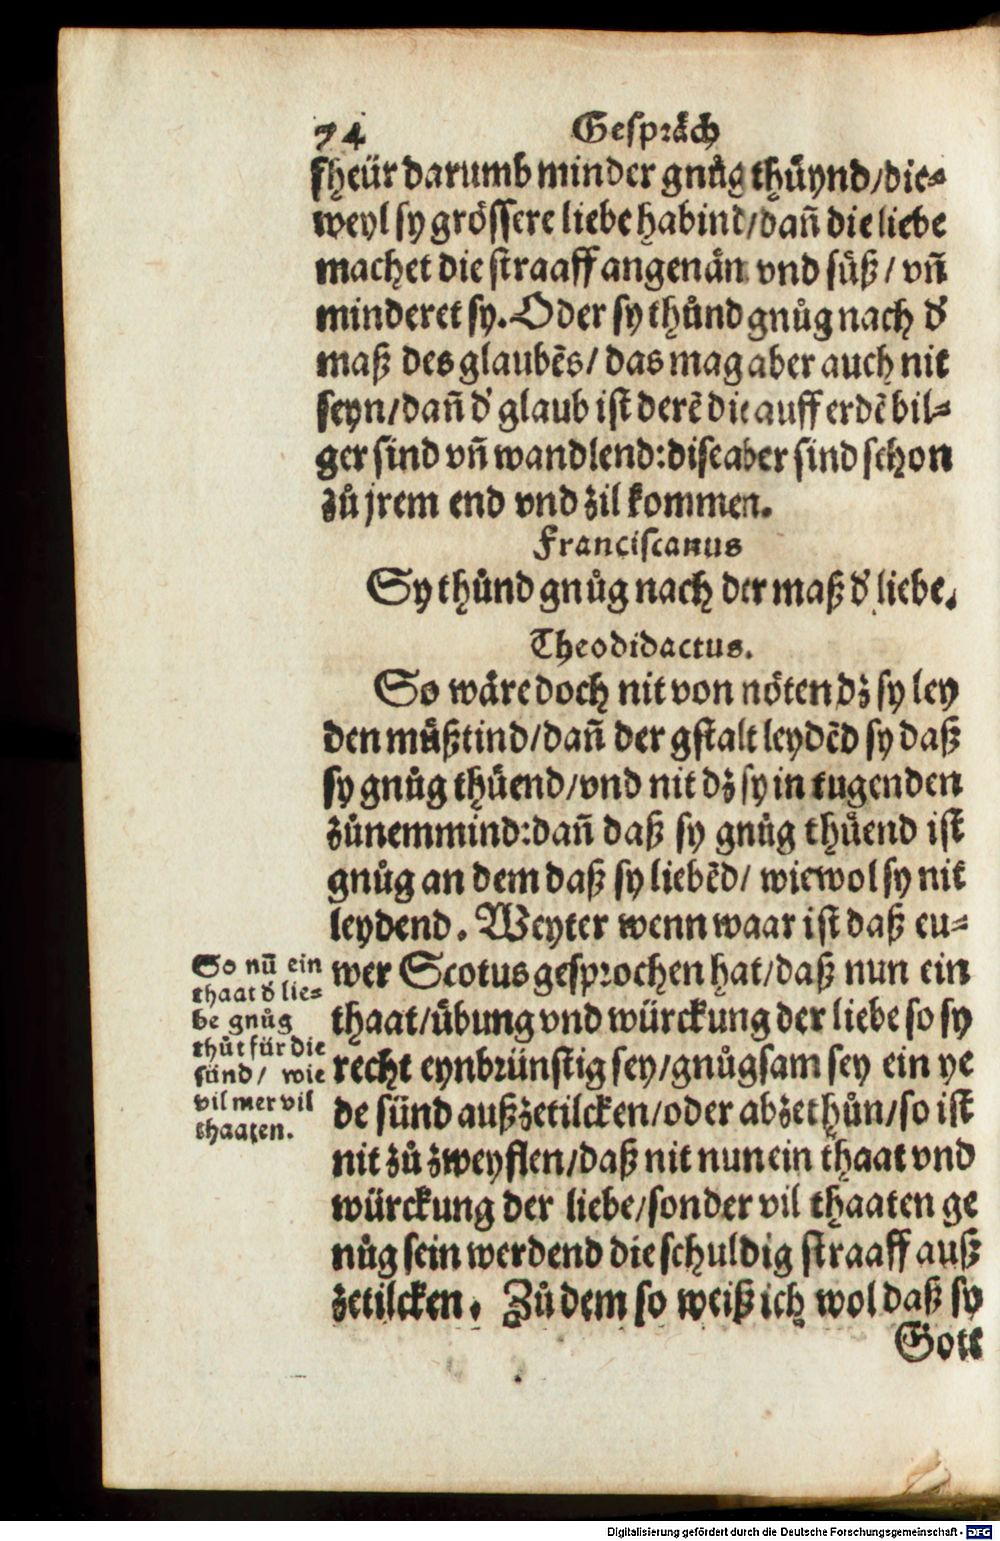 74 Gespräch
fheür darumb minder gnůg thüynd/die-
weyl sy grössere liebe habind/dañ die liebe
machet die straaff angenän vnd süß/ vñ
minderet sy. Oder sy thůnd gnůg nach d'
maß des glaubẽs/ das mag aber auch nit
seyn/dañ d' glaub ist derẽ die auff erdẽ bil-
ger sind vñ wandlend: dise aber sind schon
zů jrem end vnd zil kommen.
Franciscanus
Sy thůnd gnůg nach der maß d' liebe.
Theodidactus.
So wäre doch nit von nöten dz sy ley
den müßtind/dañ der gstalt leydẽd sy daß
sy gnůg thüend/vnd nit dz sy in tugenden
zůnemmind: dañ daß sy gnůg thüend ist
gnůg an dem daß sy liebẽd/ wiewol sy nit
leydend. Weyter wenn waar ist daß eu-
wer Scotus gesprochen hat/daß nun ein
thaat/übung vnd würckung der liebe so sy
recht eynbrünstig sey/gnůgsam sey ein ye
de sünd außzetilcken/oder abzethůn/so ist
nit zů zweyflen/daß nit nun ein thaat vnd
würckung der liebe/sonder vil thaaten ge
nůg sein werdend die schuldig straaff auß
zetilcken. Zů dem so weiß ich wol daß sy
Gott
So nũ ein
thaat d' lie-
be gnůg
thůt für die
sünd/ wie
vil mer vil
thaaten.
Digitalisierung gefördert durch die Deutsche Forschungsgemeinschaft - DFG